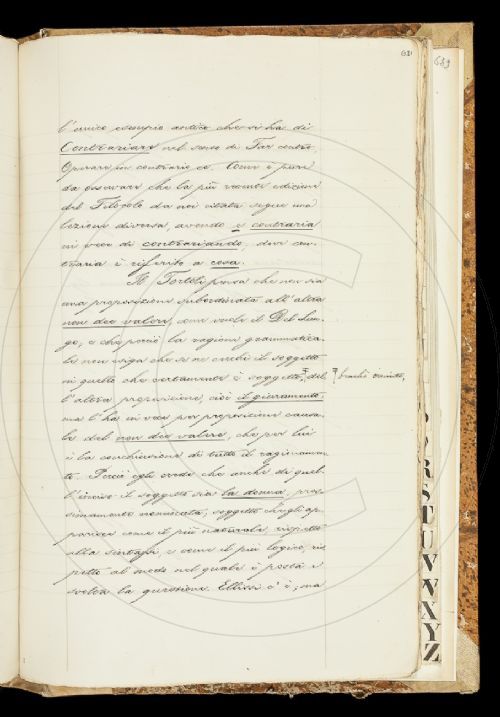 681
689
l'unico esempio antico che si ha di
Contrariare nel senso di Far contro,
Operare in contrario ec. Come è pure
da osservare che la più recente edizione
del Filocolo da noi citata segue una
lezione diversa avendo e contraria
in vece di contrariando, dove con-
traria è riferito a cosa.
Il Tortoli pensa che non sia
una proposizione subordinata all'altra
non dee valere, come vuole il Del Lun-
go, e che perciò la ragione grammatica-
le non esiga che se ne cerchi il soggetto
in quello che certamente è soggetto del-
l'altra proposizione, cioè il giuramento;
ma l'ha in vece per proposizione causa-
le del non dee valere, che per lui
è la conclusione di tutto il ragionamen-
to. Perciò egli crede che anche di quel-
l'inciso il soggetto sia la donna, pros-
simamente nominata; soggetto ch'egli ap-
parisce come il più naturale, rispetto
alla sintassi, e come il più logico, ris-
petto al modo nel quale è posta e
svolta la questione. Ellissi c'è; ma
R
S
T
U
V
W
X
Y
Z